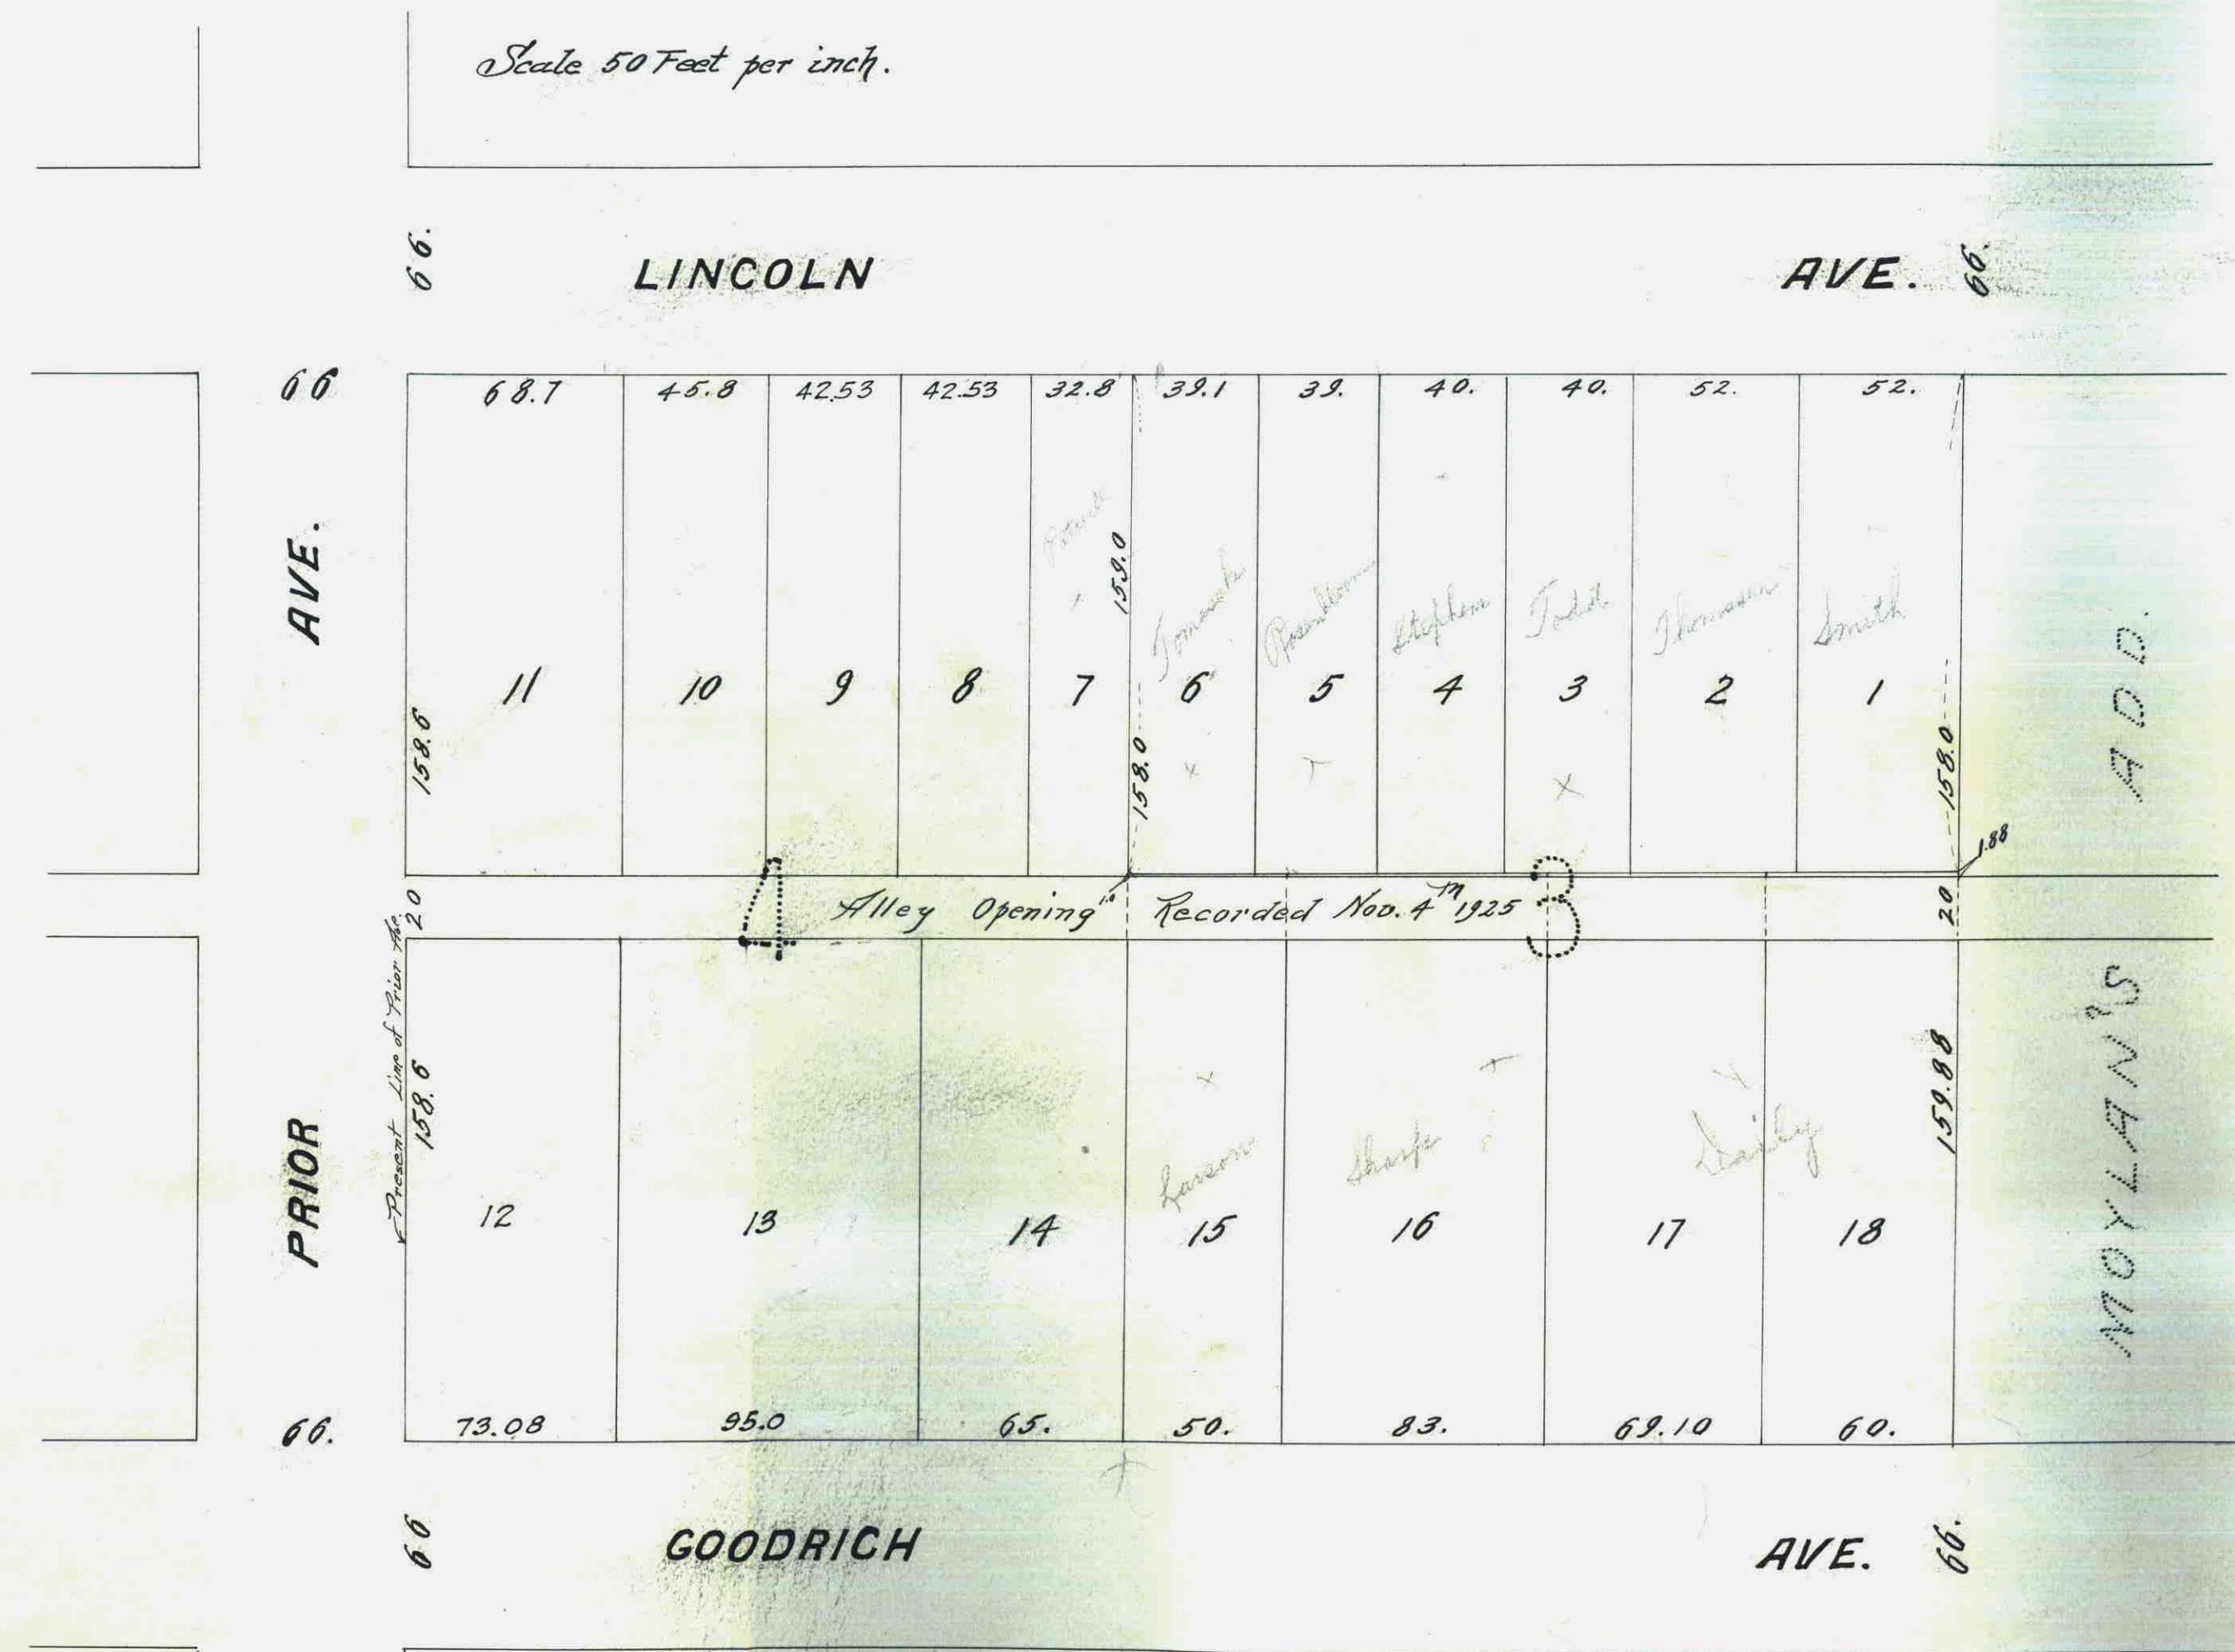 Scale 50 Feet per inch.
66.
LINCOLN AVE.
66.
66
68.7 45.8 42.53 42.53 32.8 39.1 39. 40. 40. 52. 52.
AVE.
159.0
Rosenbloom Stephens Todd Thomssen Smith
11 10 9 8 7 6 5 4 3 2 1
158.6
158.0
158.0
1.88
ADD.
4
3
20
Alley Opening Recorded Nov. 4th 1925
20
Present Line of Prior Ave.
158.6
159.88
MOYLAN'S
PRIOR
Larson Sharpe Daily
12 13 14 15 16 17 18
66.
73.08 95.0 65. 50. 83. 69.10 60.
66
GOODRICH AVE.
66.